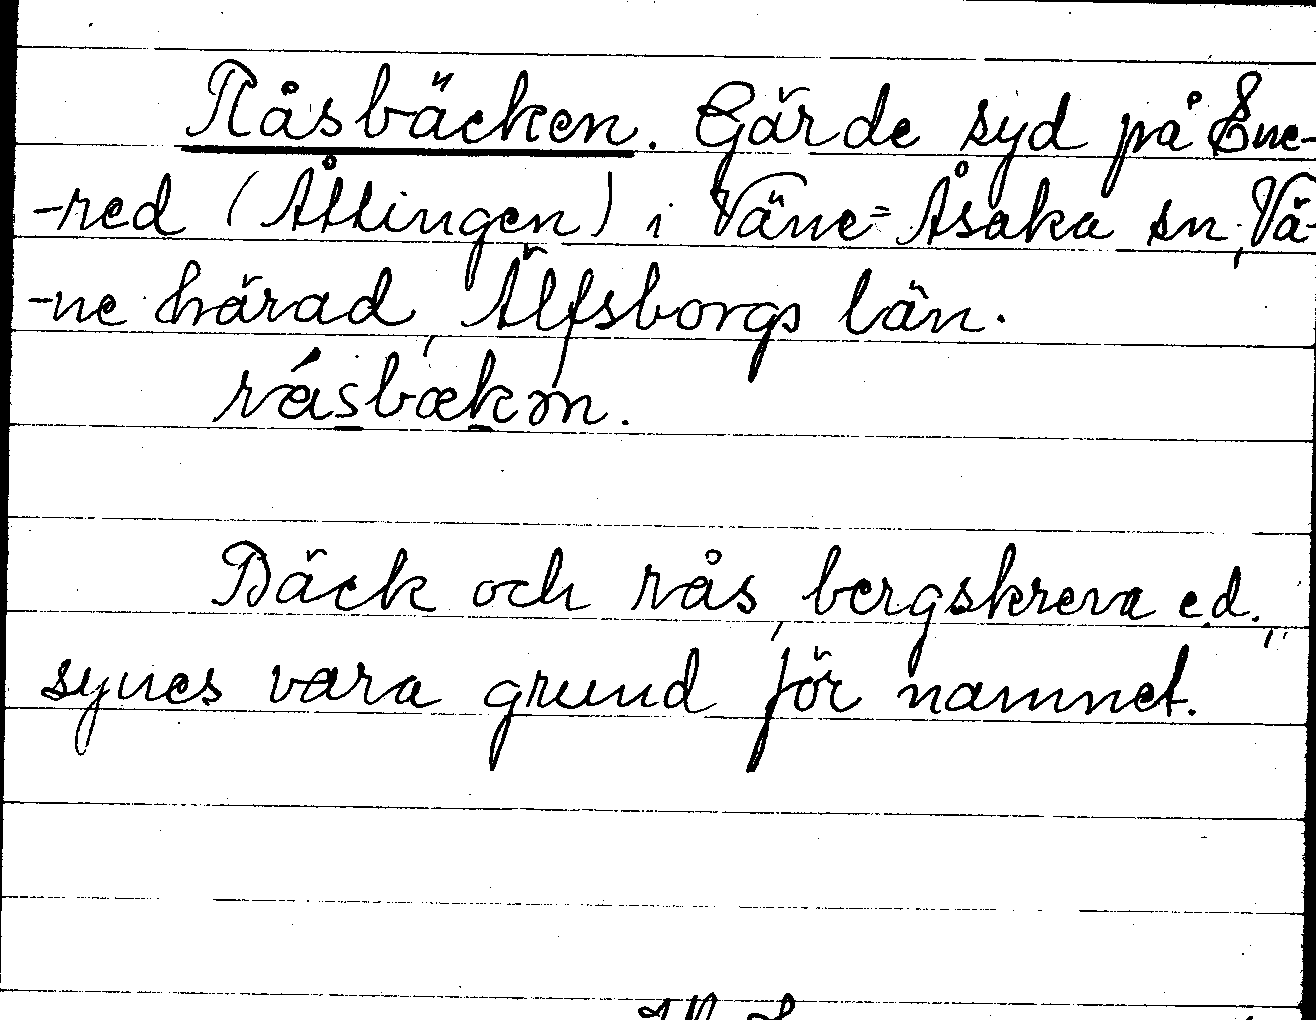 Råsbäcken. Gärde syd på Ene-
-red (Åttingen) i Väne=Åsaka sn, Vä-
-ne härad, Älfsborgs län.
råsbækən.
Bäck och rås, bergskreva e.d.,
synes vara grund för namnet.